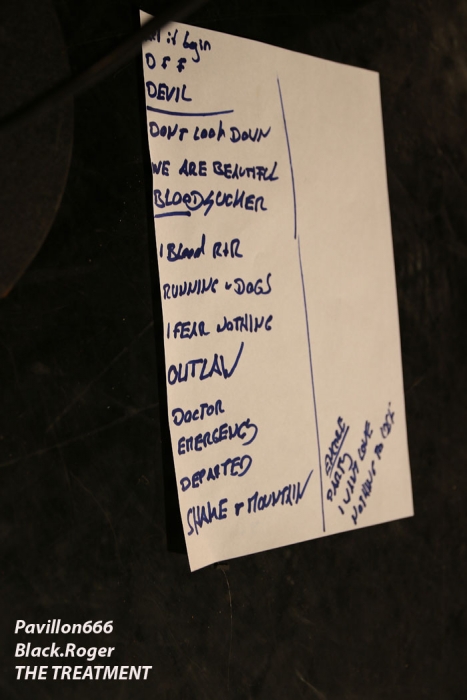 it Begin
OFF
DEVIL
DON'T LOOK DOWN
WE ARE BEAUTIFUL
BLOODSUCKER
I Blood R+R
RUNNING + DOGS
I FEAR NOTHING
OUTLAW
DOCTOR
EMERGENCY
DEPARTED
SHAKE + MOUNTAIN
PARTY
I WANT LOVE
NOTHING TO LOSE
Pavillon666
Black.Roger
THE TREATMENT